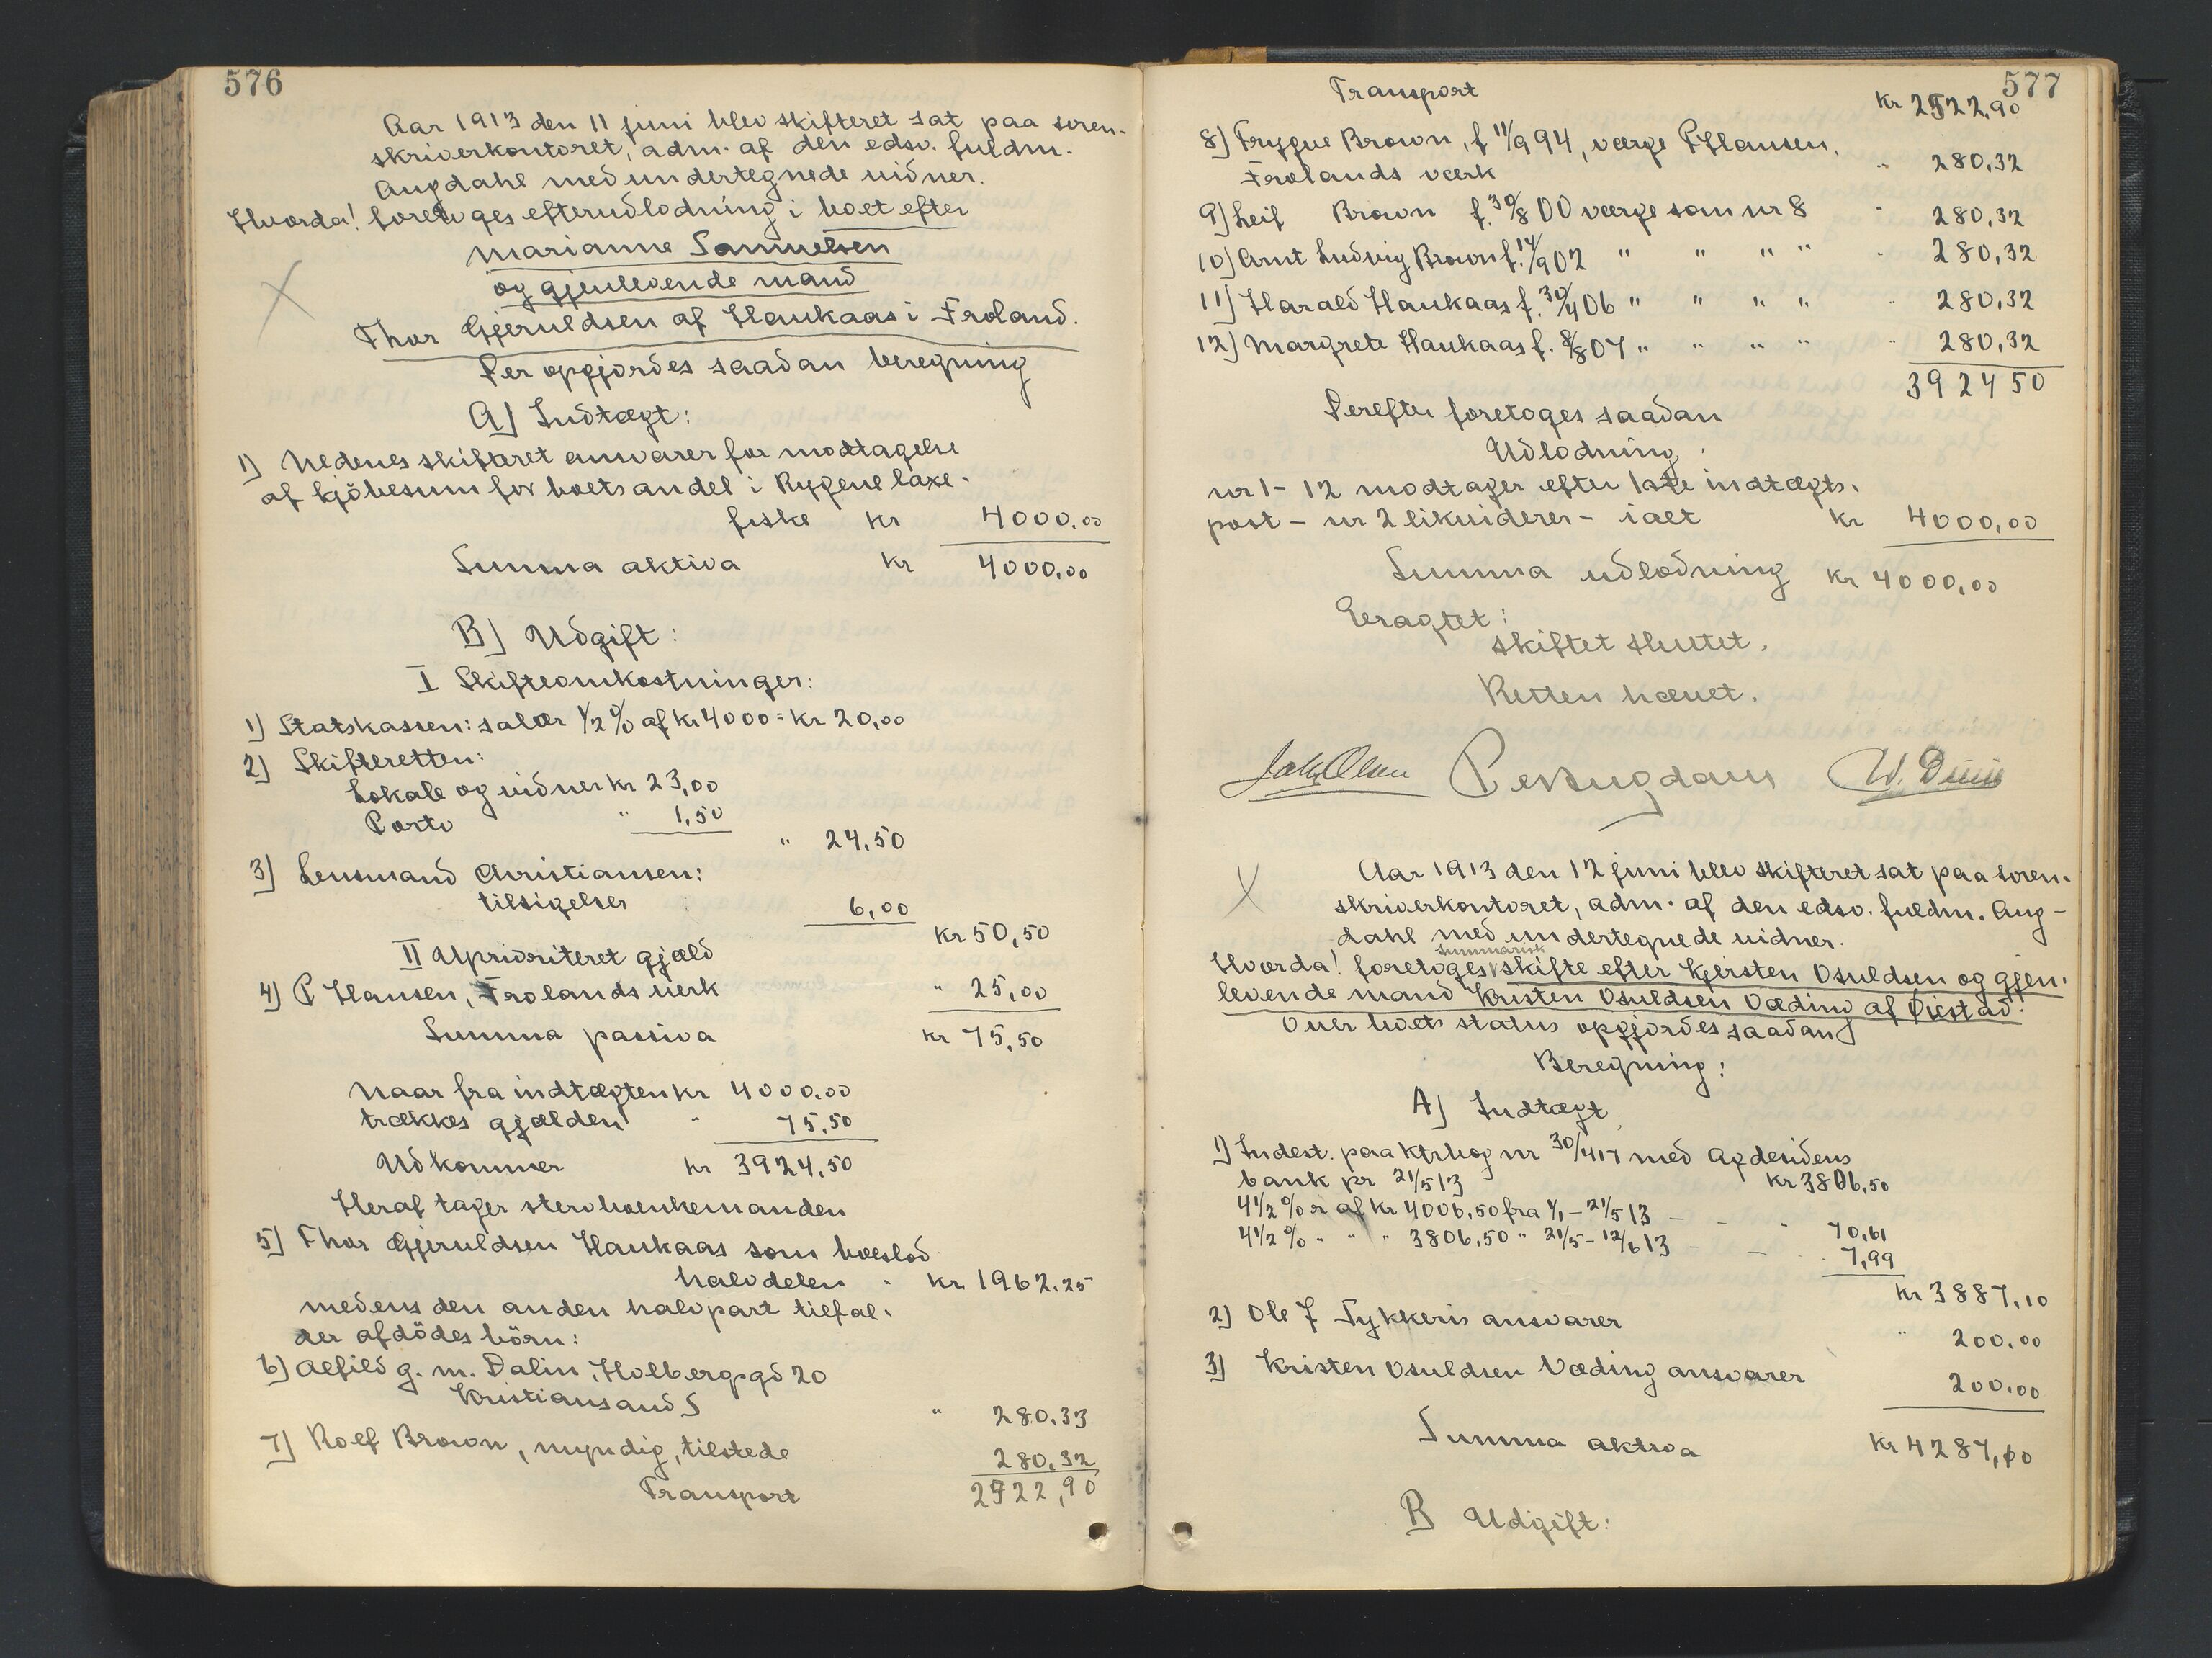 576
Aar 1913 den 11 juni blev skifteret sat paa soren-
skriverkontoret, adm. af den edsv. fuldm.
Augdahl med undertegnede vidner.
Hvorda! foretoges efterudlodning i boet efter
Marianne Samuelsen
og gjenlevende mand
Thor Gjeruldsen af Haukaas i Froland.
Der opgjordes saadan beregning
A) Indtægt:
1) Nedenes skifteret ansvarer for modtagelse
af kjöbesum for boets andel i Rygene laxe-
fiske kr 4000.00
Summa aktiva kr 4000.00
B) Udgift:
I Skifteomkostninger:
1) Statskassen: salær 1/2 % af kr 4000 = kr 20,00
2) Skifteretten:
Lokale og vidner kr 23,00
Porto " 1,50
" 24,50
3) Lensmand Christiansen:
tilsigelser 6,00
kr 50,50
II Uprioriteret gjæld
4) P Hansen, Frolands verk " 25,00
Summa passiva kr 75,50
Naar fra indtægten kr 4000.00
trækkes gjælden " 75,50
Udkommer kr 3924,50
Heraf tager stervboenkemanden
5) Thor Gjeruldsen Haukaas som boeslod
halvdelen - kr 1962.25
medens den anden halvpart tilfal-
der afdödes börn:
6) Alfild g. m. Dalin, Holbergsgd 20
Kristiansand S " 280.33
7) Rolf Brown, myndig, tilstede 280,32
Transport 2522,90
577
Transport kr 2522,90
8) Trygve Brown, f 11/9 94, værge P Hansen,
Frolands værk " 280,32
9) Leif Brown f. 30/8 00 værge som nr 8 " 280,32
10) Arnt Ludvig Brown f. 14/9 02 " " " " " 280,32
11) Harald Haukaas f. 30/4 06 " " " " " 280,32
12) Margrete Haukaas f. 8/8 07 " " " " " 280,32
3924 50
Derefter foretoges saadan
Udlodning:
nr 1-12 modtager efter 1ste indtægts-
post - nr 2 likviderer - ialt kr 4000,00
Summa udlodning kr 4000,00
Eeragtet:
skiftet sluttet.
Retten hævet.
Joh. Olsen Per Augdahl W. Duus
Aar 1913 den 12 juni blev skifteret sat paa soren-
skriverkontoret, adm. af den edsv. fuldm. Aug-
dahl med undertegnede vidner.
summarisk
Hvorda! foretoges skifte efter Kjersten Osuldsen og gjen-
levende mand Kristen Osuldsen Væding af Öiestad.
Over boets status opgjordes saadan
Beregning:
A) Indtægt
1) Indest. paa ktrbog nr 30/417 med Agdesidens
bank pr 21/5 13 kr 3806,50
4 1/2 % r af kr 4006,50 fra 1/1 - 21/5 13 - - " 70,61
4 1/2 % " " " 3806,50 " 21/5 - 12/6 13 - - " 7,99
kr 3887,10
2) Ole J Tykkeris ansvarer " 200.00
3) Kristen Osuldsen Væding ansvarer 200.00
Summa aktiva kr 4287,10
B Udgift: